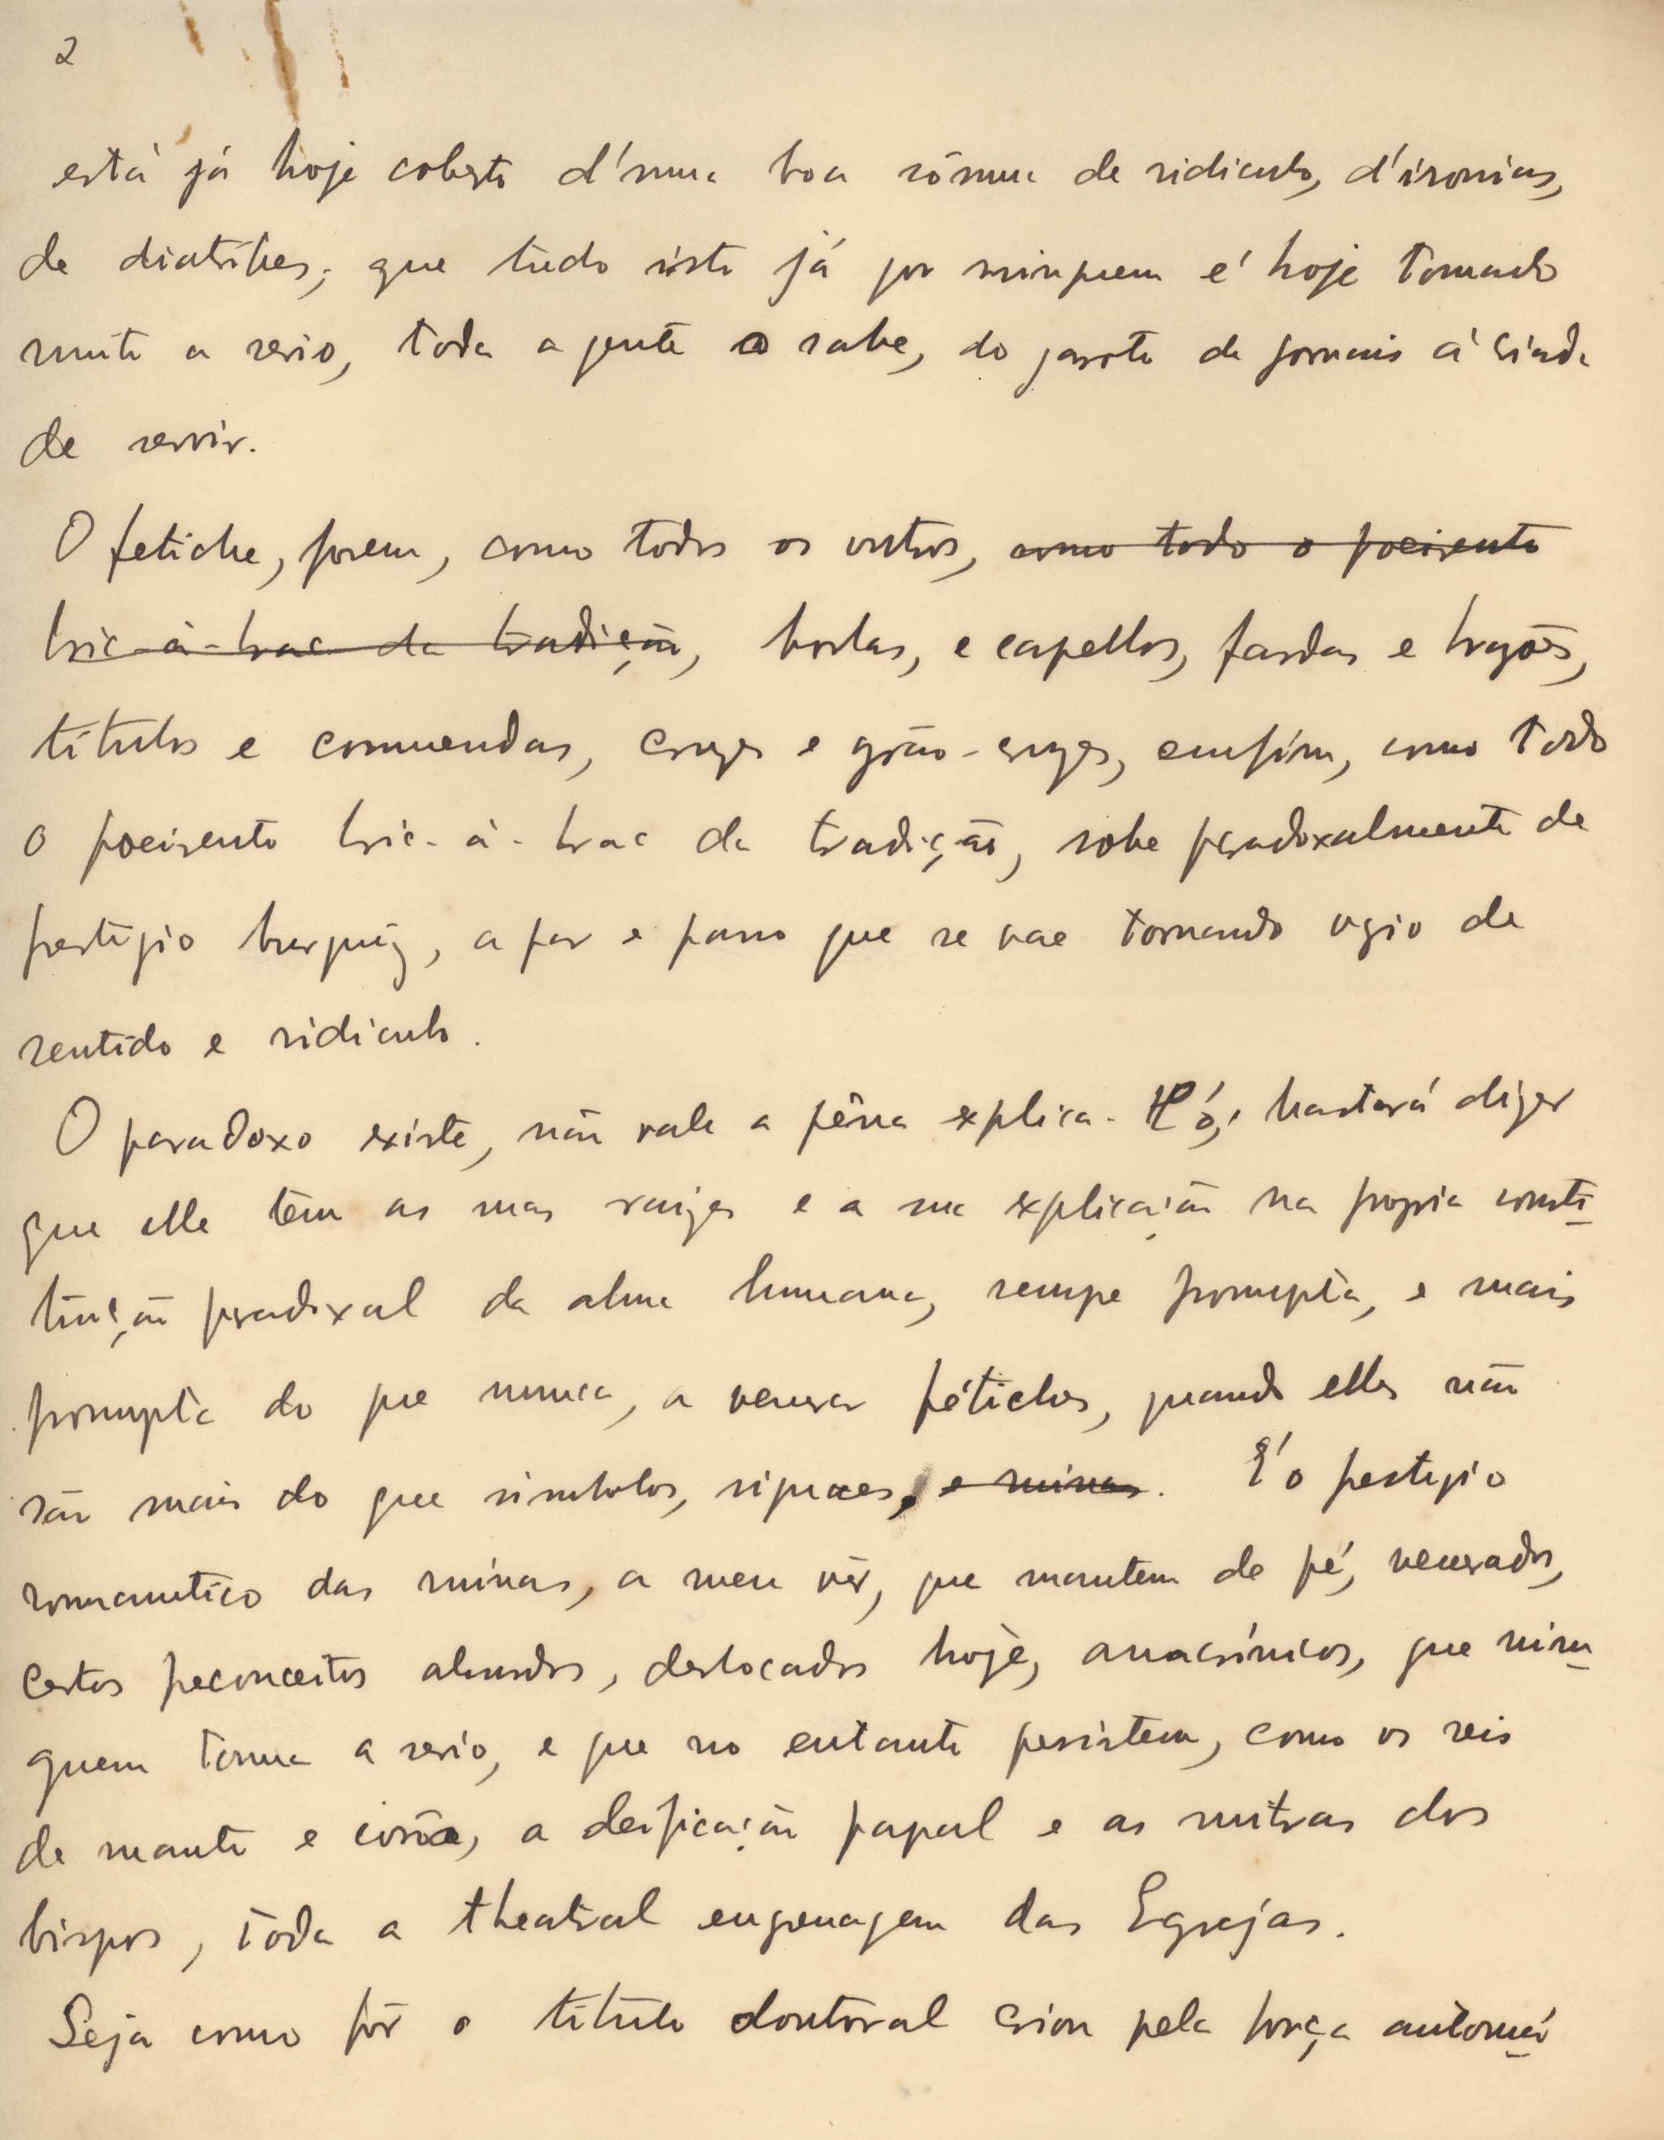 2
está já hoje coberto d'uma boa sôma de ridiculo, d'ironias,
de diatribes; que tudo isto já por ninguem é hoje tomado
muito a serio, toda a gente o sabe, do garoto de jornais á criada
de servir.
O fetiche, porem, como todos os outros, como todo o poeirento
bric-à-brac da tradição, borlas, e capellos, fardas e brazões,
titulos e commendas, cruzes e grão-cruzes, emfim, como todo
o poeirento bric-à-brac da tradição, sobe paradoxalmente de
prestigio burguez, a par e passo que se vae tornando vazio de
sentido e ridiculo.
O paradoxo existe, não vale a pêna explica-lo; bastará dizer
que elle têm as suas raizes e a sua explicação na propria consti-
tuição paradoxal da alma humana, sempre prompta, e mais
prompta do que nunca, a venerar fétiches, quando elles não
são mais do que simbolos, signaes, e ruinas. É o prestigio
romantico das ruinas, a meu vêr, que mantem de pé, venerados,
certos preconceitos absurdos, deslocados hoje, anacrónicos, que nin-
guem toma a serio, e que no entanto persistem, como os reis
de manto e corôa, a deificação papal e as mitras dos
bispos, toda a theatral engrenagem das Egrejas.
Seja como fôr o titulo doutoral criou pela força automá-